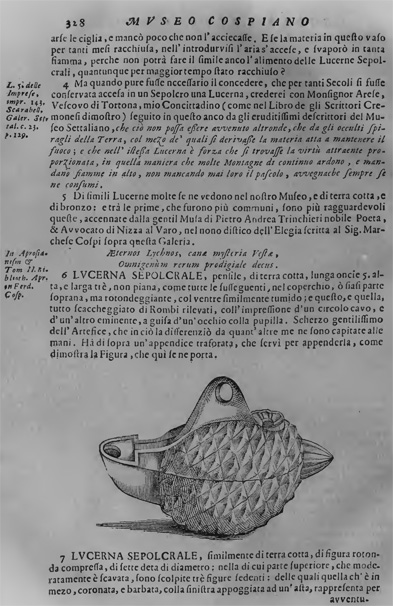 328 MVSEO COSPIANO
arse le ciglia, e mancò poco che non l'acciecasse. E se la materia in questo vaso
per tanti mesi racchiusa, nell'introdurvisi l'aria s'accese, e svaporò in tanta
fiamma, perche non potrà fare il simile anco l'alimento delle Lucerne Sepol-
crali, quantunque per maggior tempo stato racchiuso?
4 Ma quando pure fusse necessario il concedere, che per tanti Secoli si fusse
conservata accesa in un Sepolcro una Lucerna, crederei con Monsignor Arese,
Vescovo di Tortona, mio Concittadino (come nel Libro de gli Scrittori Cre-
monesi dimostro) seguito in questo anco da gli eruditissimi descrittori del Mu-
seo Settaliano, che ciò non possa essere avvenuto altronde, che da gli occulti spi-
ragli della Terra, col mezo de' quali si derivasse la materia atta a mantenere il
fuoco; e che nell'istessa Lucerna è forza che si trovasse la virtù attraente pro-
porzionata, in quella maniera che molte Montagne di continuo ardono, e man-
dano fiamme in alto, non mancando mai loro il pascolo, avvegnache sempre se
ne consumi.
L. 5. delle
Imprese,
impr. 143.
Scarabell.
Galer. Set-
tal. c. 25.
p. 129.
5 Di simili Lucerne molte se ne vedono nel nostro Museo, e di terra cotta, e
di bronzo: e trà le prime, che furono più communi, sono più ragguardevoli
queste, accennate dalla gentil Musa di Pietro Andrea Trinchieri nobile Poeta,
& Avvocato di Nizza al Varo, nel nono distico dell'Elegia scritta al Sig. Mar-
chese Cospi sopra questa Galeria.
Æternos Lychnos, cana mysteria Vestæ,
Omnigenûm rerum prodigiale decus.
Tom II.
Cosp.
6 LVCERNA SEPOLCRALE, pensile, di terra cotta, lunga oncie 5. al-
ta, e larga trè, non piana, come tutte le susseguenti, nel coperchio, ò siasi parte
soprana, ma rotondeggiante, col ventre similmente tumido; e questo, e quella,
tutto scaccheggiato di Rombi rilevati, coll'impressione d'un circolo cavo, e
d'un'altro eminente, a guisa d'un'occhio colla pupilla. Scherzo gentilissimo
dell'Artefice, che in ciò la differenziò da quant'altre me ne sono capitate alle
mani. Hà di sopra un'appendice traforata, che servì per appenderla, come
dimostra la Figura, che qui se ne porta.
7 LVCERNA SEPOLCRALE, similmente di terra cotta, di figura roton-
da compressa, di sette deta di diametro: nella di cui parte superiore, che mode-
ratamente è scavata, sono scolpite trè figure sedenti: delle quali quella ch'è in
mezo, coronata, e barbata, colla sinistra appoggiata ad un'asta, rappresenta per
avventu-